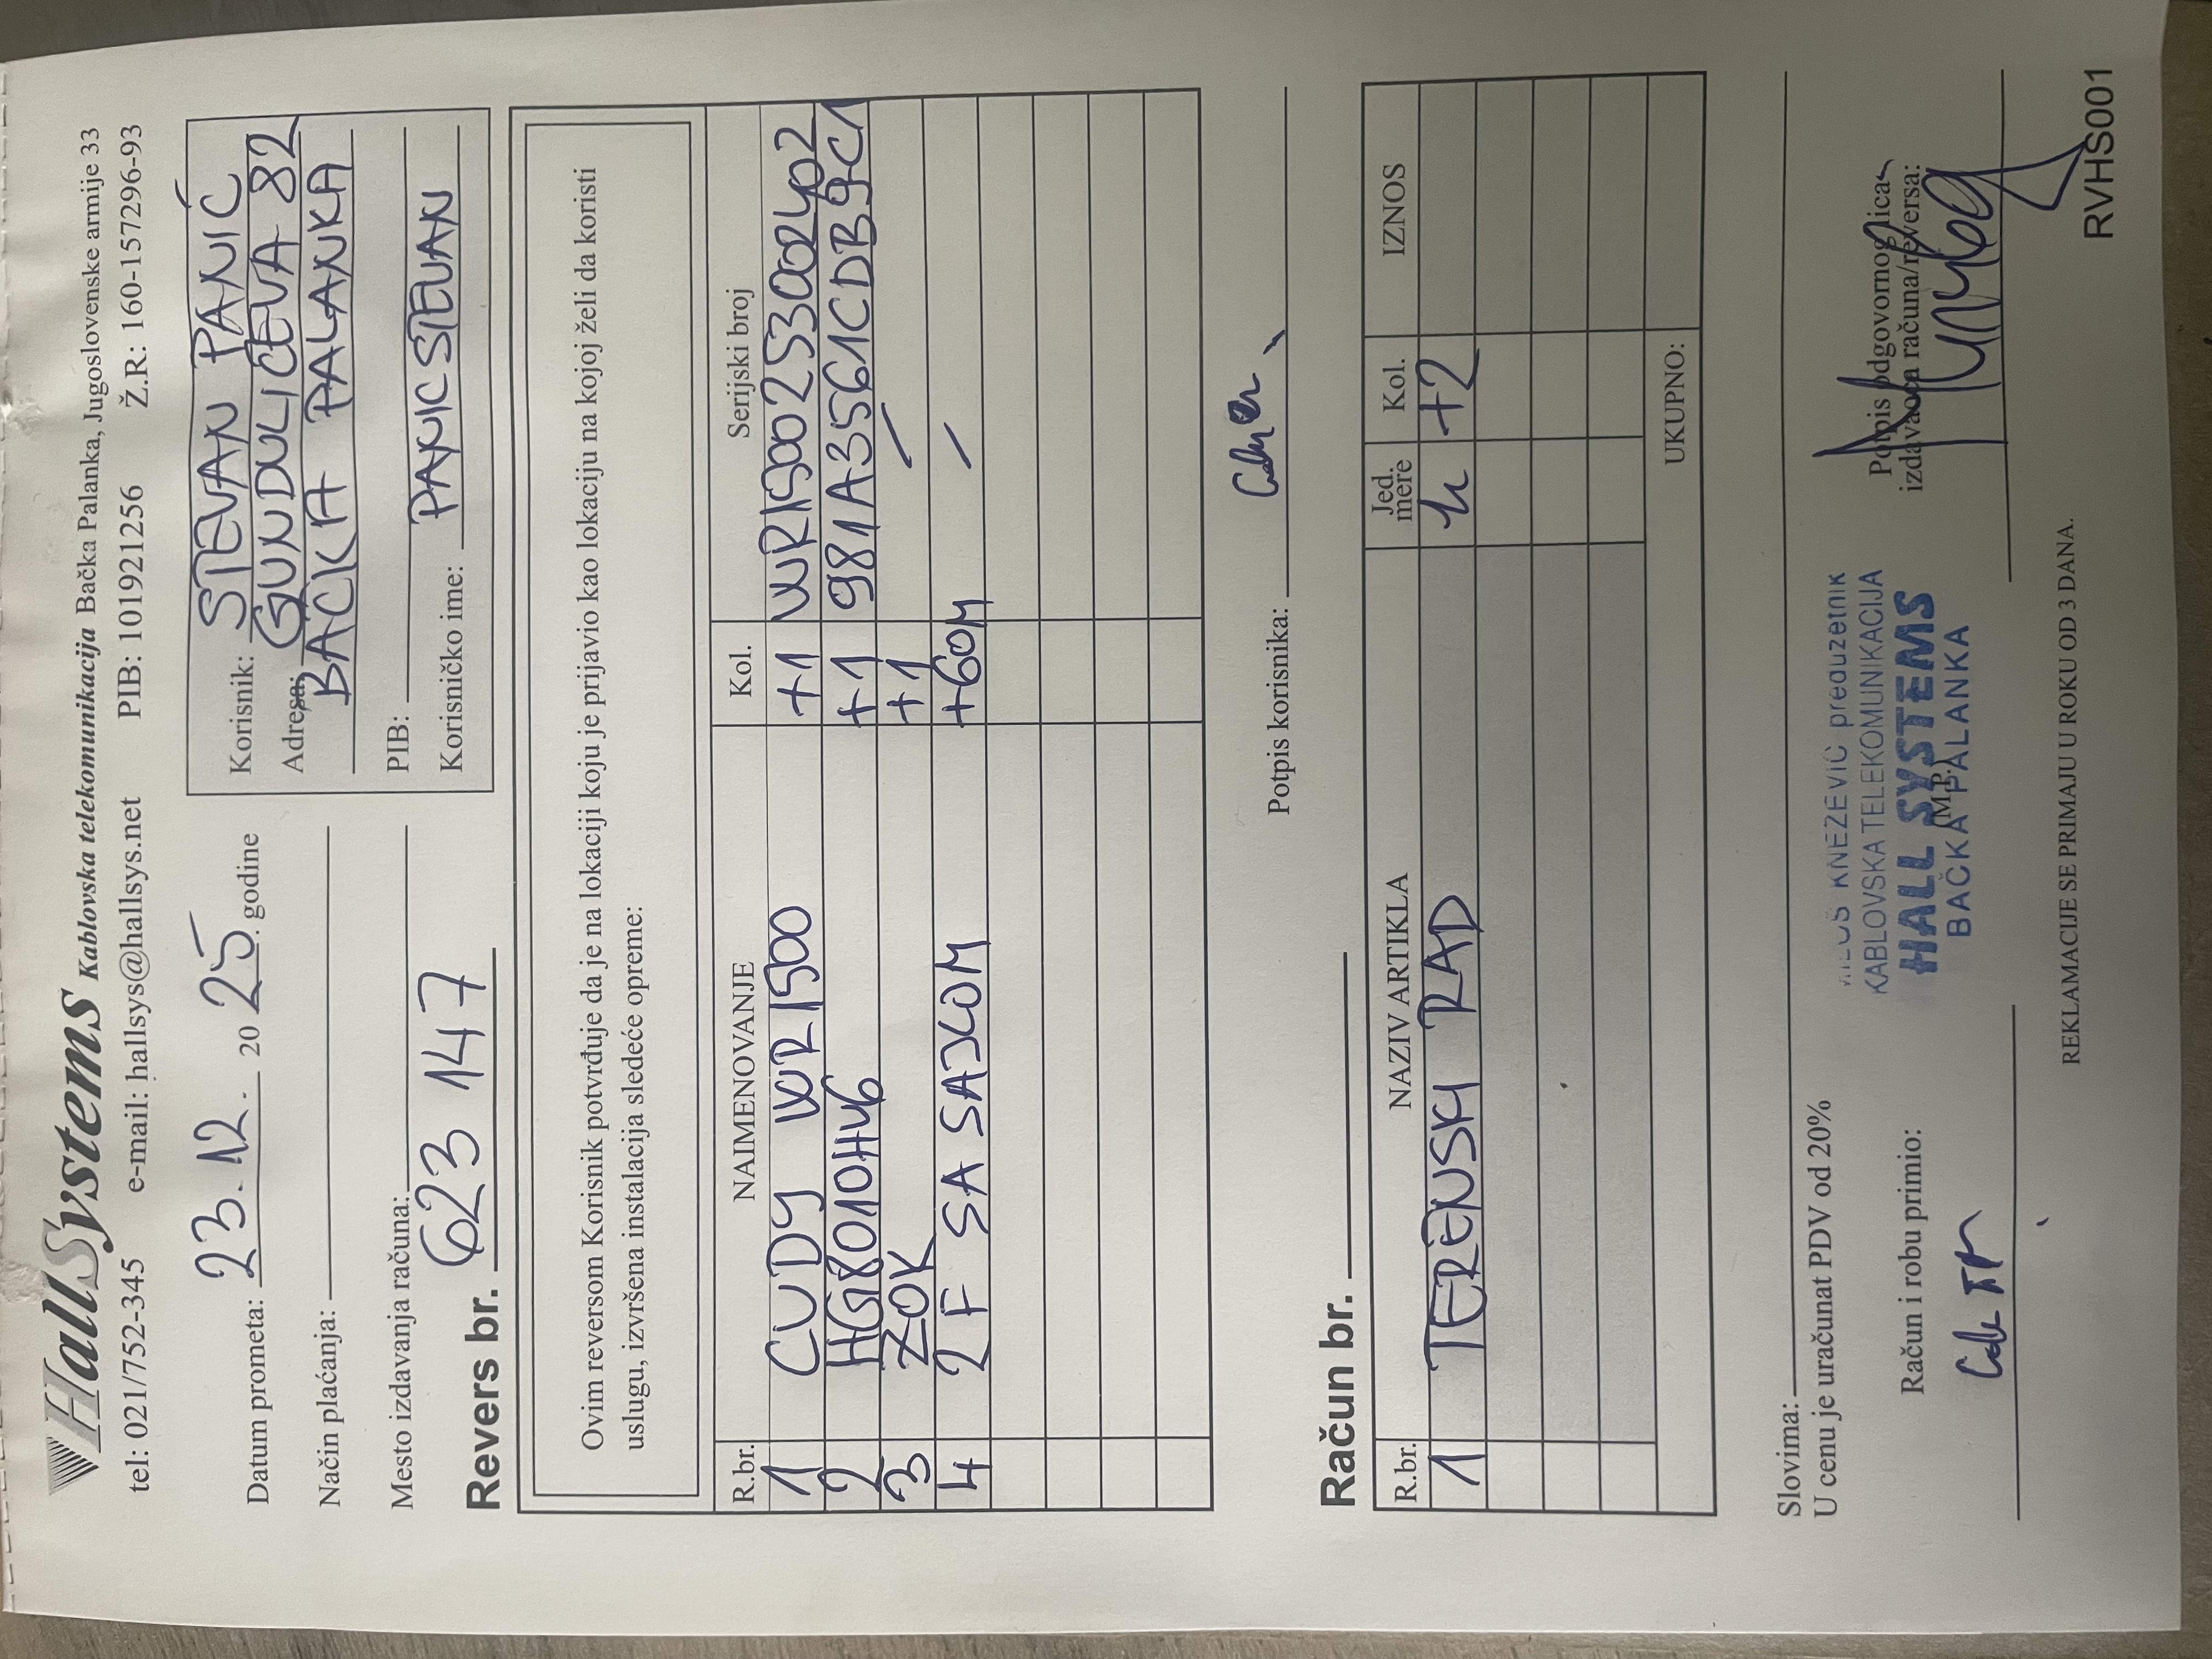 HallSystems Kablovska telekomunikacija Bačka Palanka, Jugoslovenske armije 33
tel: 021/752-345 e-mail: hallsys@hallsys.net PIB: 101921256 Ž.R: 160-157296-93
Datum prometa: 23.12. 2025. godine
Način plaćanja:
Mesto izdavanja računa:
Korisnik: STEVAN PANIĆ
Adresa: GUNDULIĆEVA 82
BAČKA PALANKA
PIB:
Korisničko ime: PANICSTEVAN
Revers br. 623 147
Ovim reversom Korisnik potvrđuje da je na lokaciji koju je prijavio kao lokaciju na kojoj želi da koristi
uslugu, izvršena instalacija sledeće opreme:
R.br. NAIMENOVANJE Kol. Serijski broj
1 CUDY WR1500 +1 WR1500253002402
2 HG8010H46 +1 981A3561CDB9C1
3 ZOK +1 /
4 2F SA SAJLOM +60M /
Potpis korisnika:
Račun br.
R.br. NAZIV ARTIKLA Jed. mere Kol. IZNOS
1 TERENSKI RAD h +2
UKUPNO:
Slovima:
U cenu je uračunat PDV od 20%
Račun i robu primio:
KNEŽEVIĆ preduzetnik
KABLOVSKA TELEKOMUNIKACIJA
HALL SYSTEMS
BAČKA PALANKA
(M.P.)
Potpis odgovornog lica
izdavaoca računa/reversa:
REKLAMACIJE SE PRIMAJU U ROKU OD 3 DANA.
RVHS001